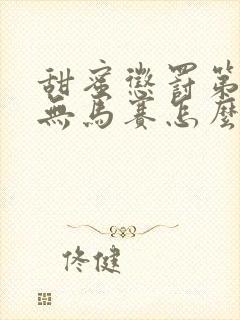 甜蜜懲罰第
無馬賽怎麼
佟健